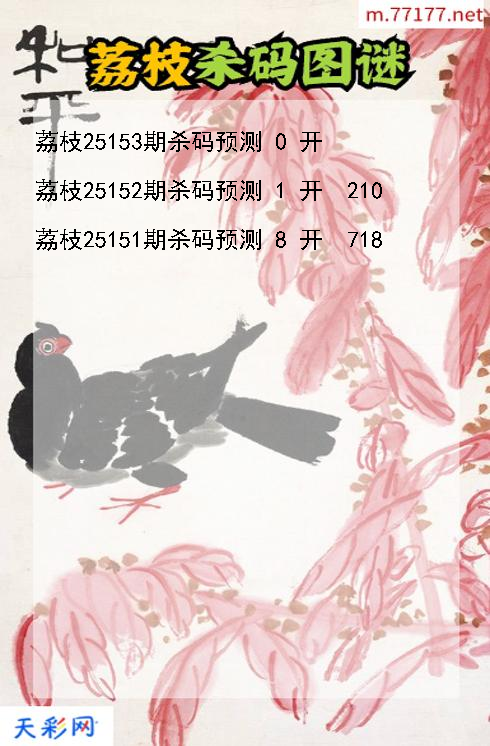 m.77177.net
和平
荔枝杀码图谜
荔枝25153期杀码预测 0 开
荔枝25152期杀码预测 1 开 210
荔枝25151期杀码预测 8 开 718
天彩网